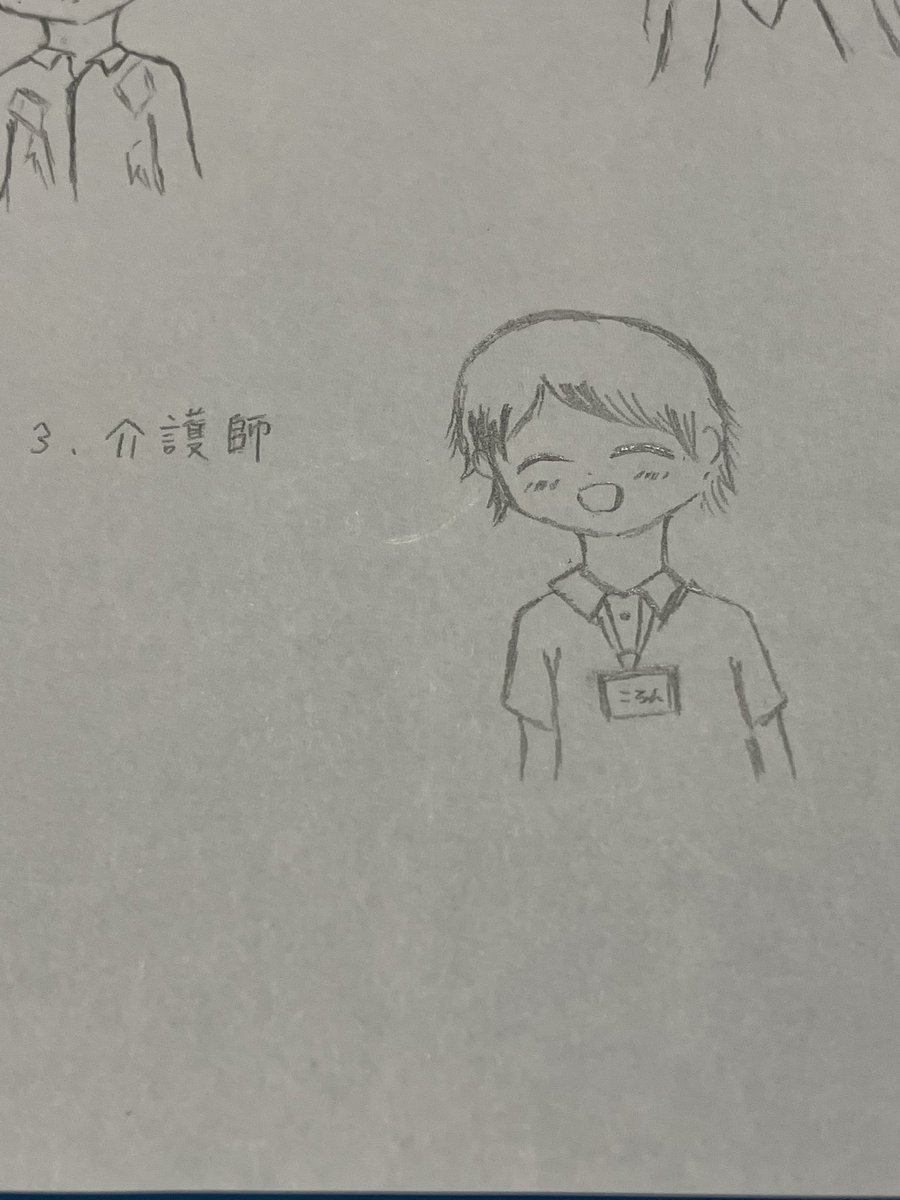 3. 介護師
ころん